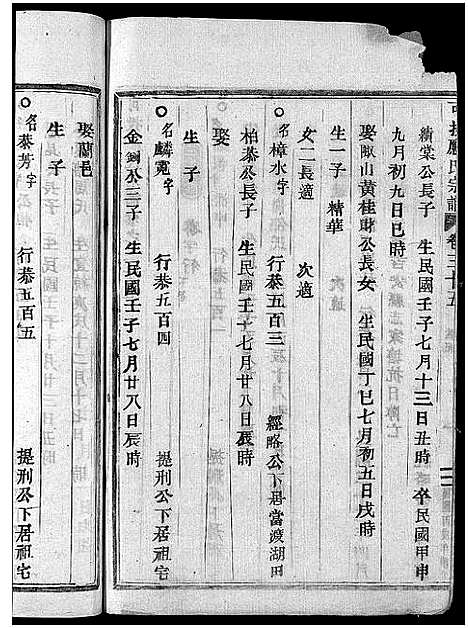 應氏宗譜 卷三十五
績棠公長子 生民國壬子七月十三日丑時 卒民國甲申
九月初九日巳時
娶畎山黃桂財公長女 生民國丁巳七月初五日戌時
生一子 精華
女二長適 次適
名樟水字 行恭五百三 經略公下居當渡湖田
柏恭公長子 生民國壬子七月廿八日辰時
娶
生 子
名麟寬字 行恭五百四 提刑公下居祖宅
金鉶公三子 生民國壬子七月廿八日辰時
娶蘭邑
生 子
名恭芳字 行恭五百五 提刑公下居祖宅